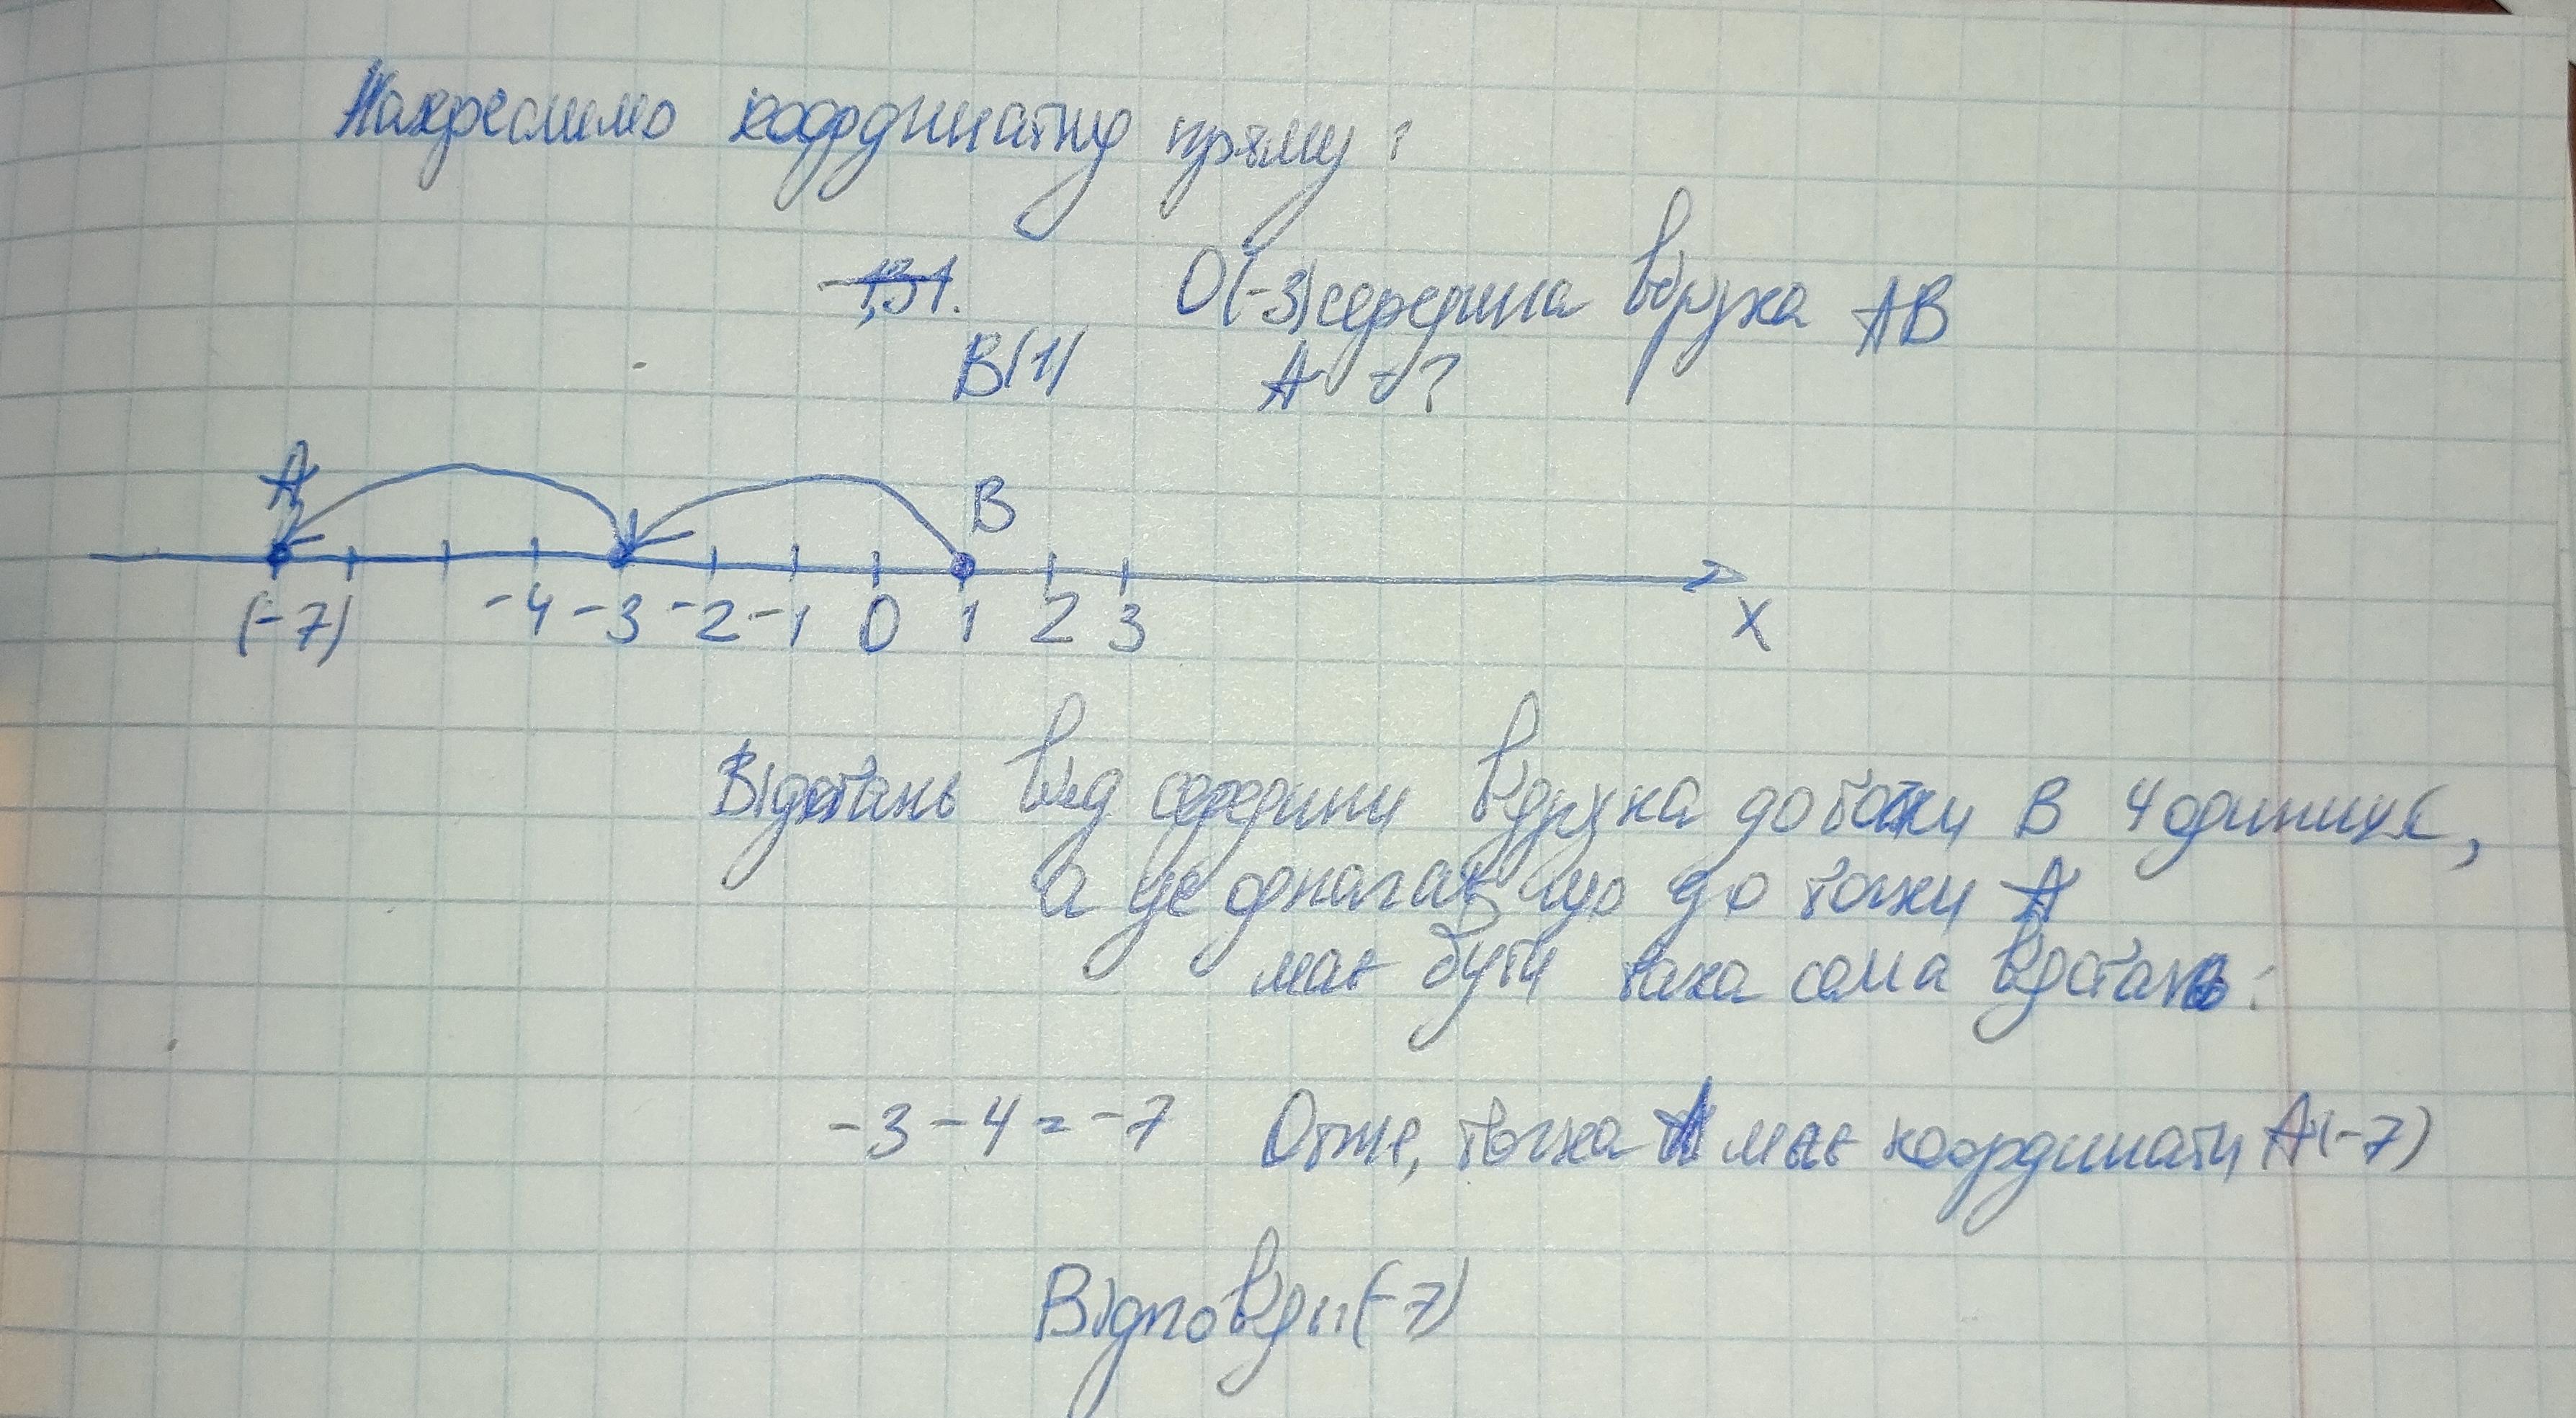 Накреслимо координатну пряму:
1,31.
О(-3) середина відрізка АВ
В(1) А - ?
А В
(-7) -4 -3 -2 -1 0 1 2 3 х
Відстань від середини відрізка до точки В 4 одиниці,
а це означає що до точки А
має бути така сама відстань:
-3-4=-7 Отже, точка А має координати А(-7)
Відповідь:(-7)